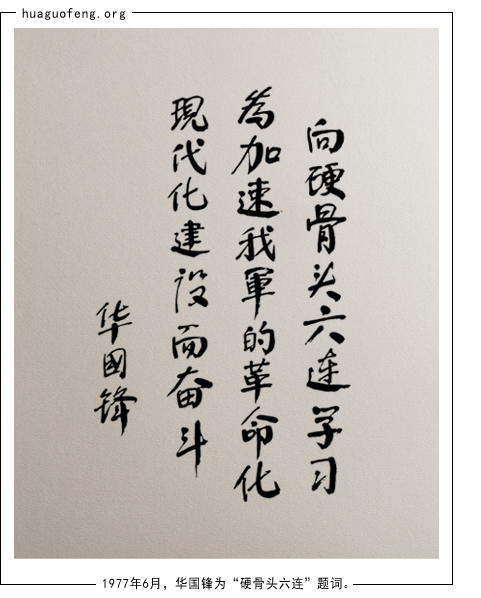 huaguofeng.org
向硬骨头六连学习
为加速我軍的革命化
現代化建设而奋斗
华國锋
1977年6月，华国锋为“硬骨头六连”题词。